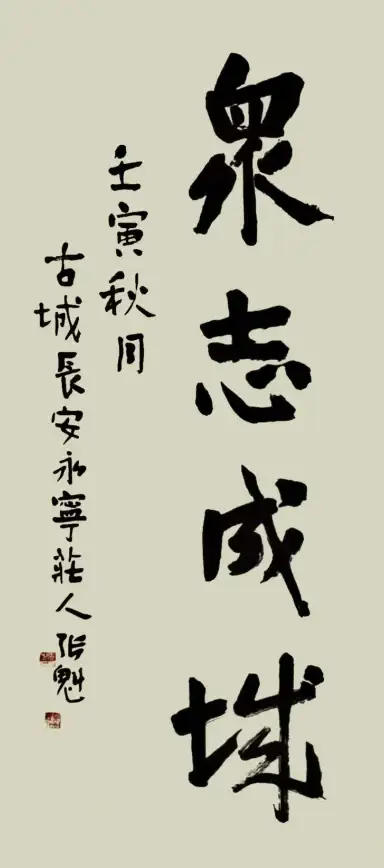 衆志成城
壬寅秋月
古城長安永寧莊人張魁